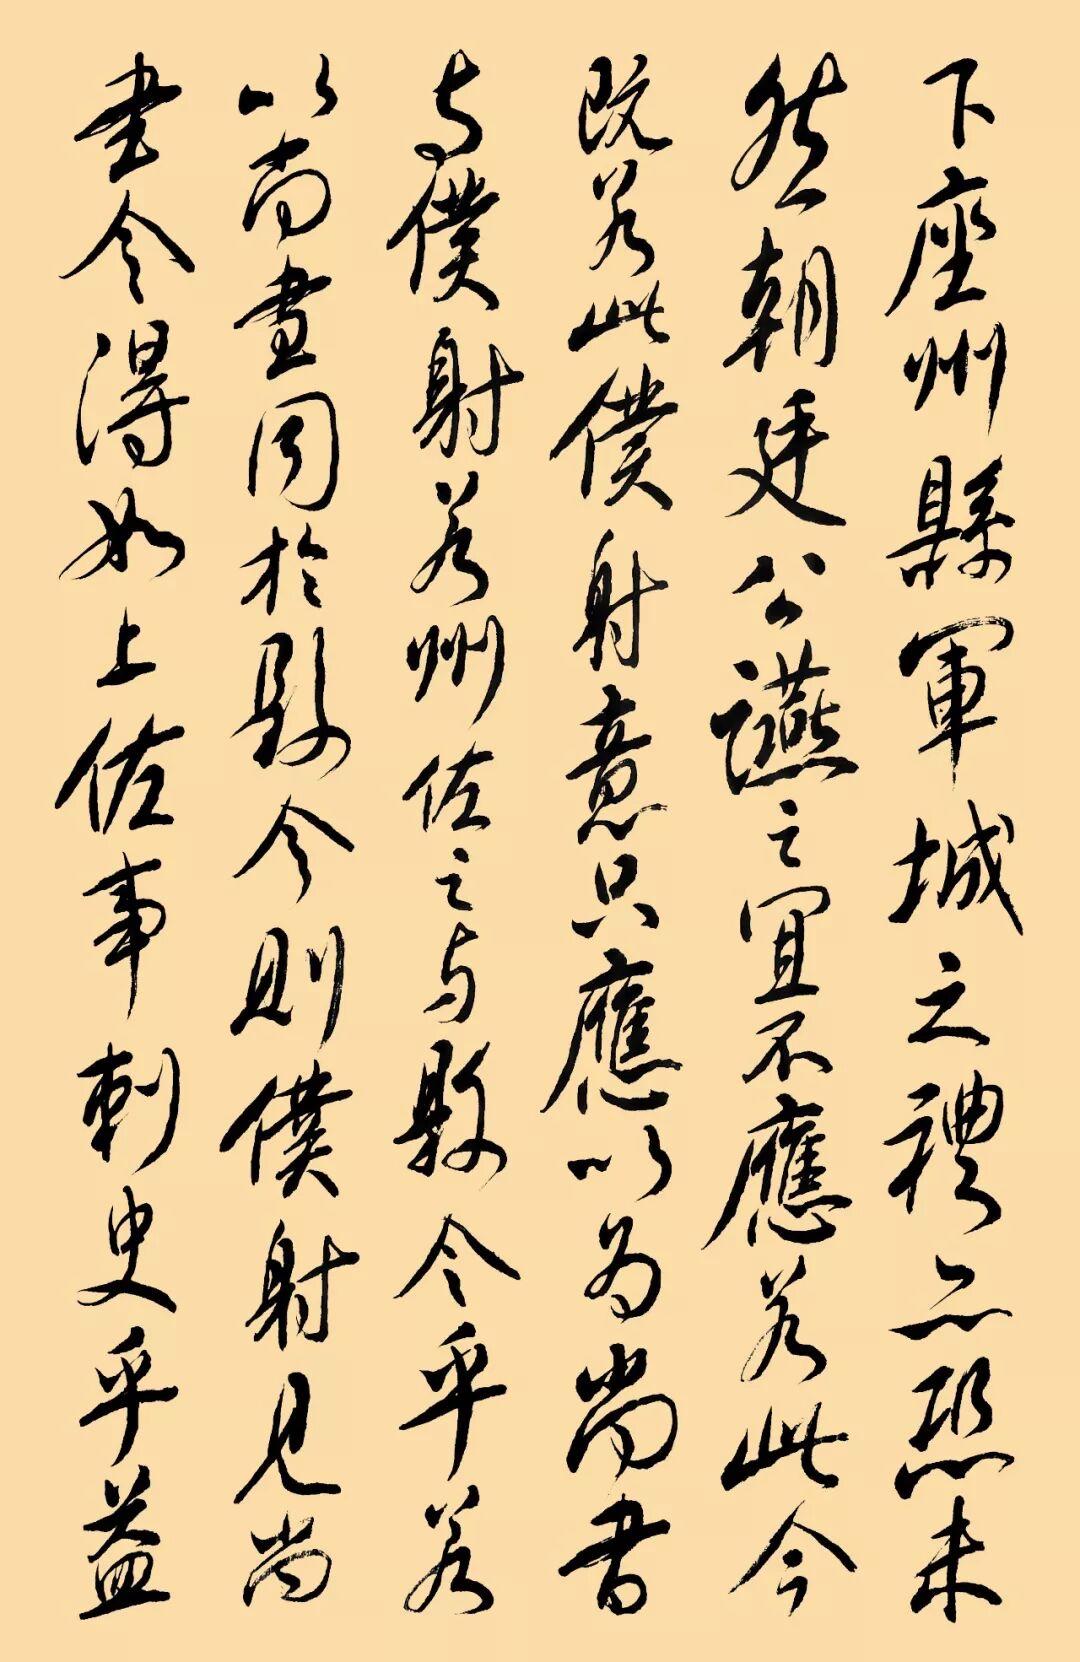 下座州縣軍城之禮亦恐未
然朝廷公讌之宜不應若此今
既若此僕射意只應以為尚書
与僕射若州佐之与縣令乎若
以尚書同於縣令則僕射見尚
書令得如上佐事刺史乎益